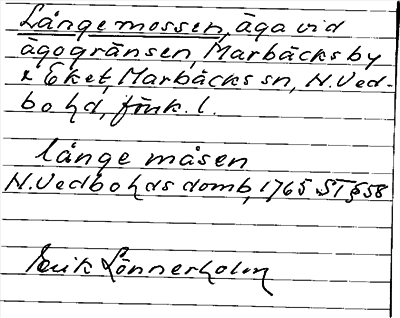 Långe mossen, äga vid
ägogränsen, Marbäcks by
& Eket, Marbäcks sn, N. Ved-
bo hd, Jönk. l.
långe måsen
N. Vedbo hds domb, 1765 ST § 58
Erik Lönnerholm